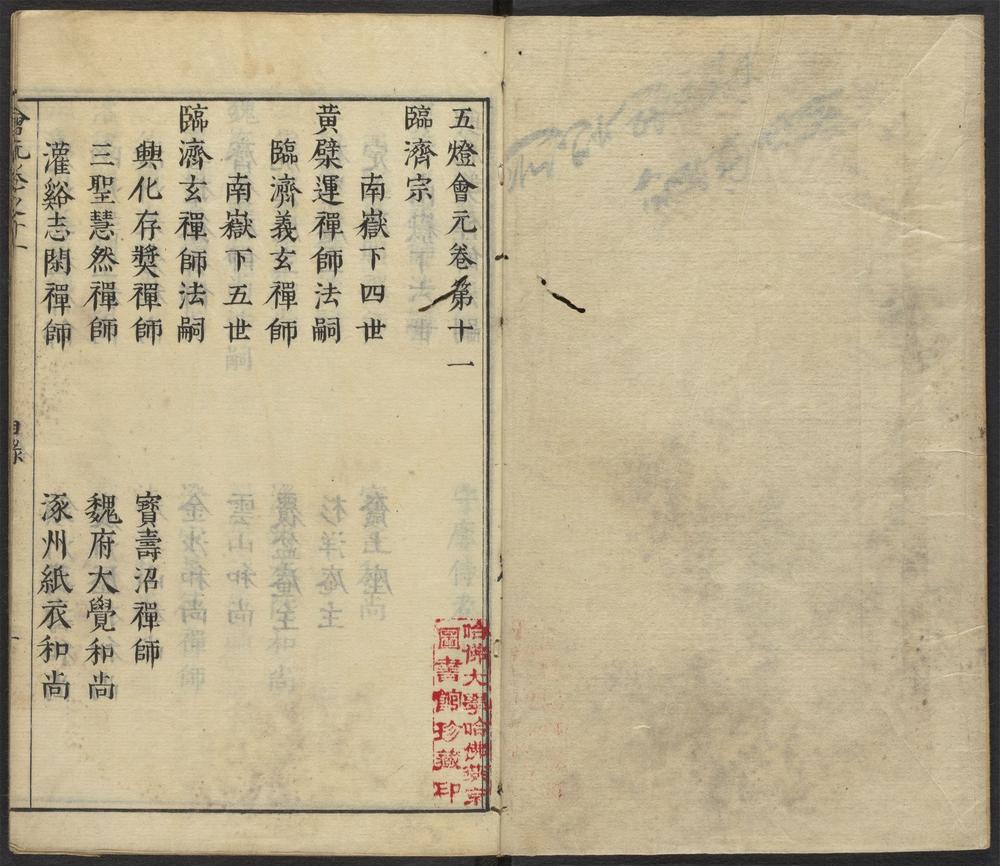 五燈會元卷第十一
臨濟宗
南嶽下四世
黃檗運禪師法嗣
臨濟義玄禪師
南嶽下五世
臨濟玄禪師法嗣
興化存奬禪師
寶壽沼禪師
三聖慧然禪師
魏府大覺和尚
灌谿志閑禪師
涿州紙衣和尚
會元卷之十一
目錄
一
哈佛大學哈佛燕京
圖書館珍藏印